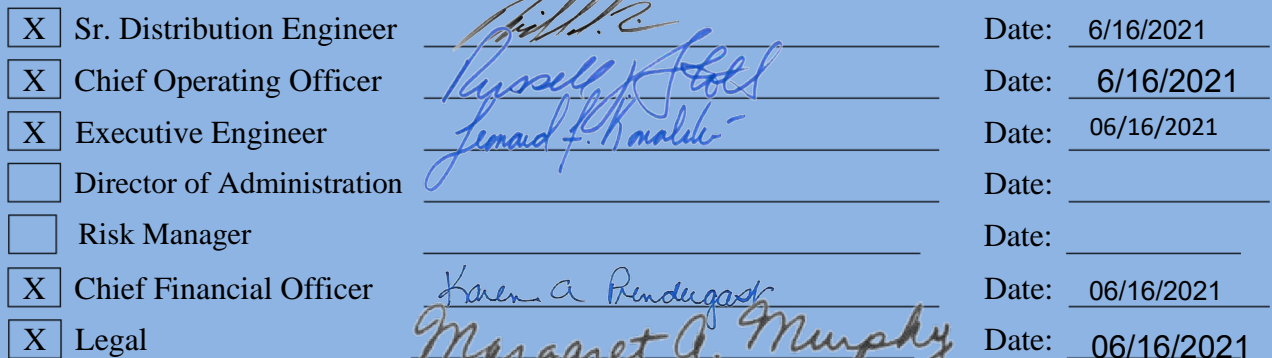 X Sr. Distribution Engineer Date: 6/16/2021
X Chief Operating Officer Russell J Date: 6/16/2021
X Executive Engineer Leonard F. Kowalski Date: 06/16/2021
Director of Administration Date:
Risk Manager Date:
X Chief Financial Officer Karen A Prendergast Date: 06/16/2021
X Legal Margaret A. Murphy Date: 06/16/2021